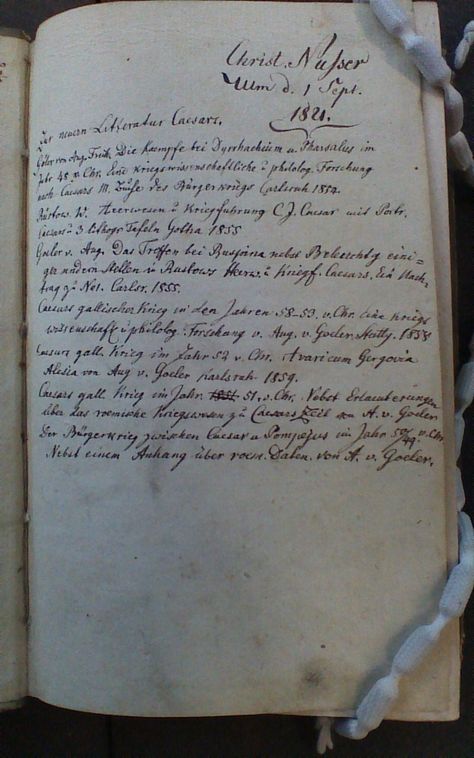 Christ. Nusser
Ulm d. 1 Sept.
1821.
Zur neuern Litteratur Caesars.
Göler von Aug. Freih. Die Kämpfe bei Dyrrhachium u. Pharsalus im
Jahr 48 v. Chr. Eine kriegswissenschaftliche u philolog. Forschung
nach Caesars III. Buche des Bürgerkriegs Carlsruh 1854.
Rüstow. W. Heerwesen u Kriegführung C. J. Caesar mit Portr.
Caesars u 3 lithogr Tafeln Gotha 1855
Goeler v. Aug. Das Treffen bei Ruspina nebst Beleuchtg eini-
ger andern Stellen in Rüstows Heerw. u Kriegf. Caesars. Ein Nach-
trag zu Carlsr. 1855.
Caesars gallischer Krieg in den Jahren 58-53 v. Chr. eine kriegs
wissenschaft u philolog. Forschung v. Aug. v. Goeler 1858
Caesars gall. Krieg im Jahr 52 v. Chr. Avaricum Gergovia
Alesia von Aug v. Goeler Karlsruh 1859.
Caesars gall. Krieg im Jahr. 51. v. Chr. Nebst Erlaeuterungen
über das roemische Kriegswesen zu Caesars Zeit von A. v. Goeler
Der Bürgerkrieg zwischen Caesar u Pompejus im Jahr 50/49 v. Chr
Nebst einem Anhang über roem. Daten. von A. v. Goeler.